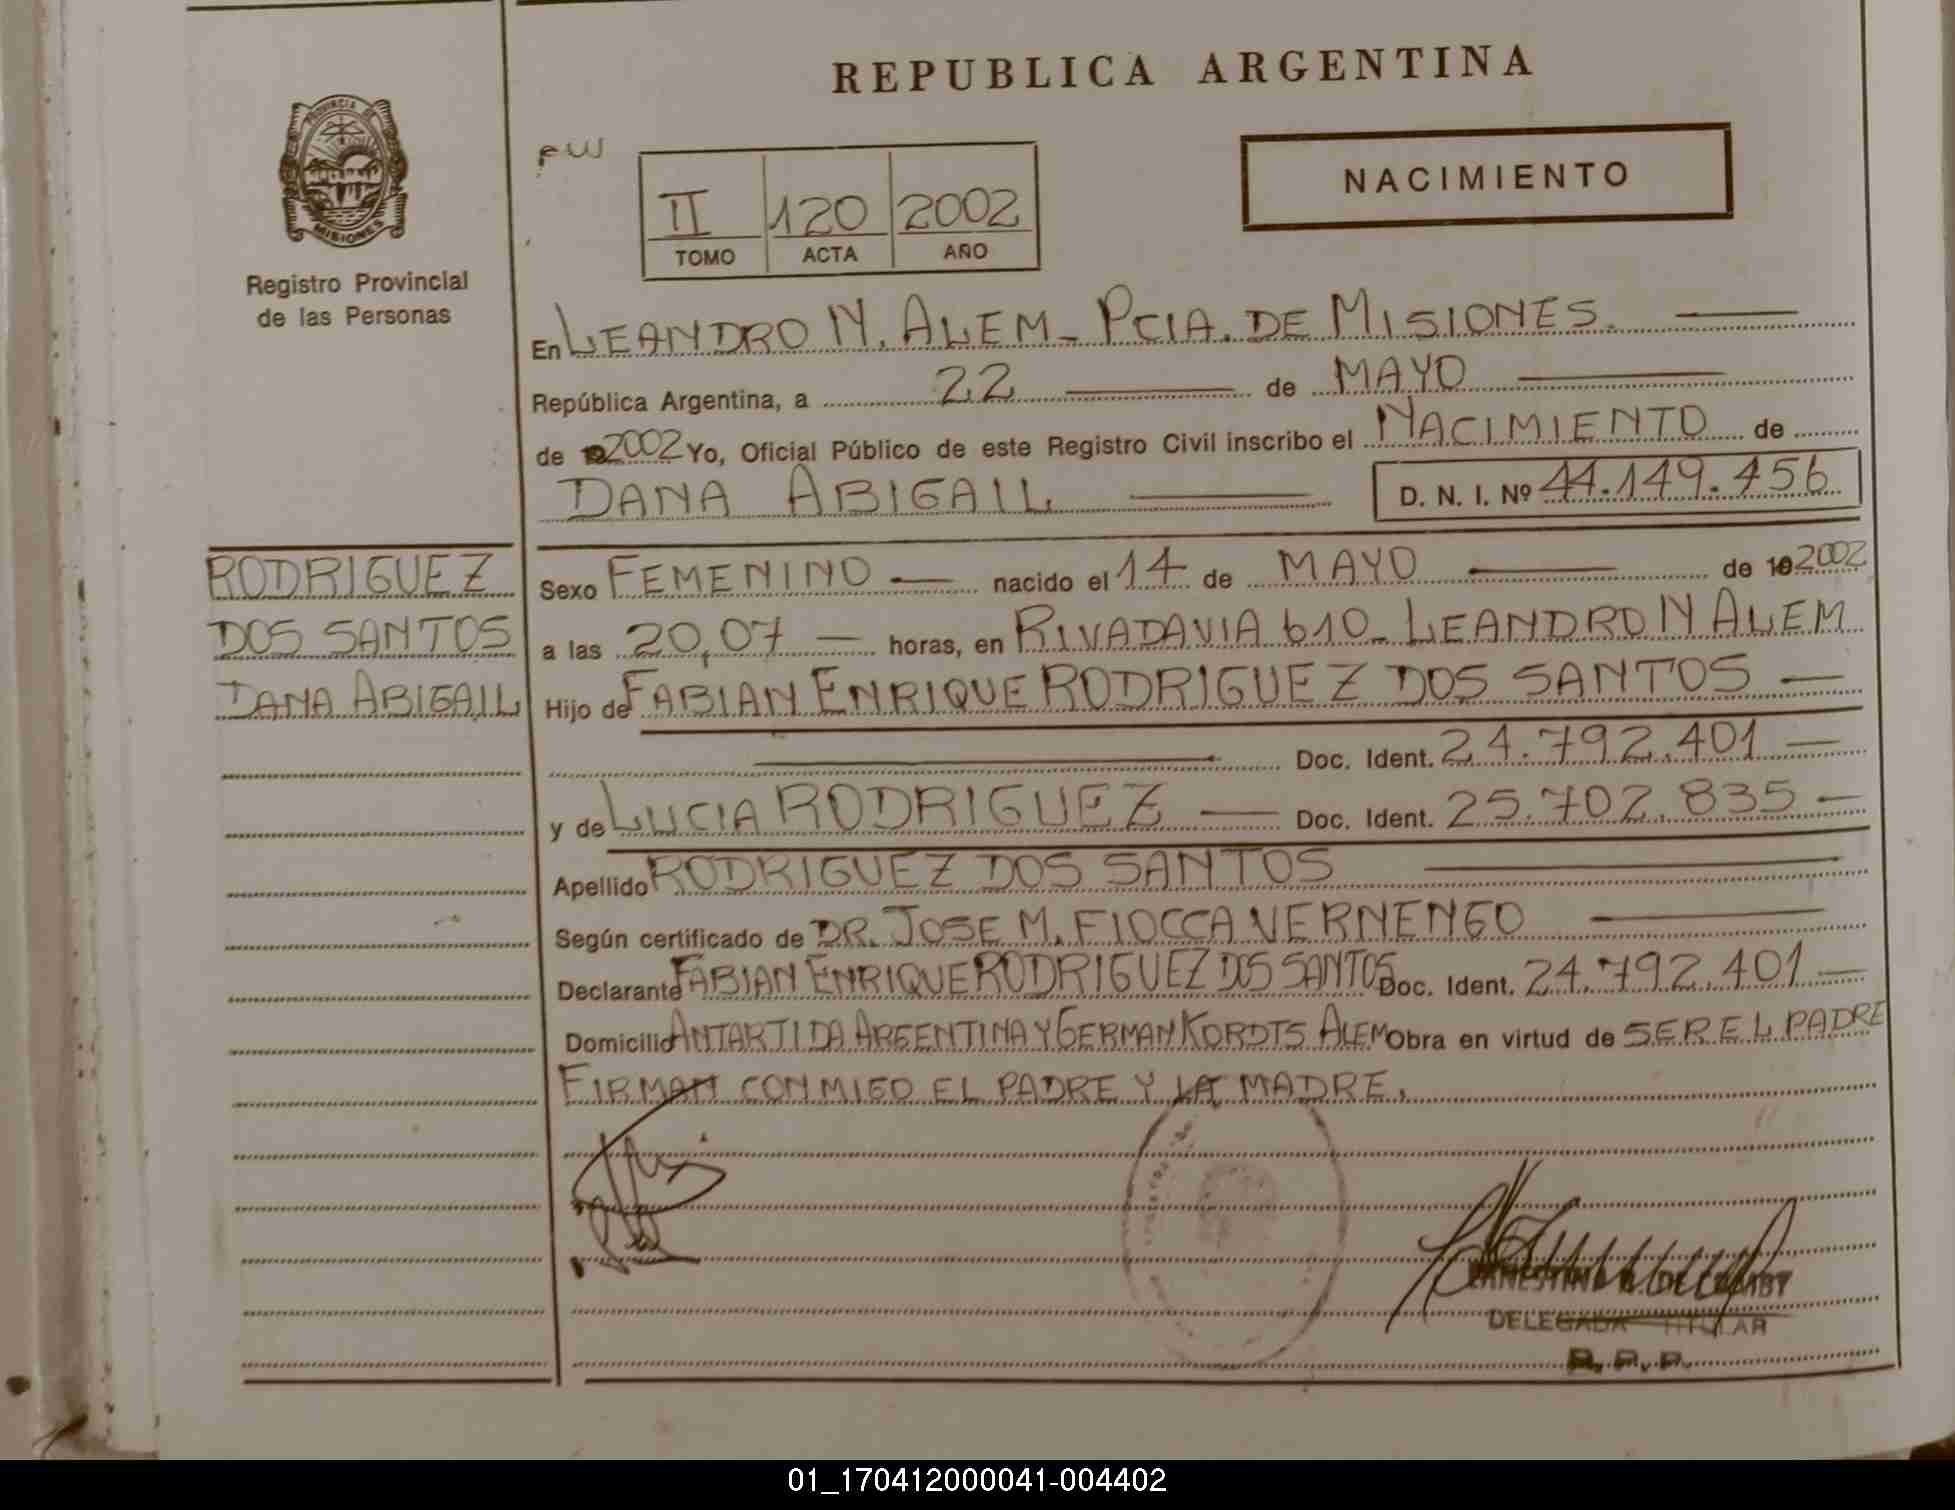 REPUBLICA ARGENTINA
PROVINCIA DE
MISIONES
Registro Provincial
de las Personas
II 120 2002
TOMO ACTA AÑO
NACIMIENTO
En LEANDRO N. ALEM - PCIA. DE MISIONES.
República Argentina, a 22 de MAYO
de 2002 Yo, Oficial Público de este Registro Civil inscribo el NACIMIENTO de
DANA ABIGAIL D. N. I. Nº 44.149.456
RODRIGUEZ
DOS SANTOS
DANA ABIGAIL
Sexo FEMENINO nacido el 14 de MAYO de 2002
a las 20,07 horas, en RIVADAVIA 610 - LEANDRO N ALEM
Hijo de FABIAN ENRIQUE RODRIGUEZ DOS SANTOS
Doc. Ident. 24.792.401
y de LUCIA RODRIGUEZ Doc. Ident. 25.702.835
Apellido RODRIGUEZ DOS SANTOS
Según certificado de DR. JOSE M. FIOCCA VERNENGO
Declarante FABIAN ENRIQUE RODRIGUEZ DOS SANTOS Doc. Ident. 24.792.401
Domicilio ANTARTIDA ARGENTINA Y GERMAN KORDTS ALEM Obra en virtud de SER EL PADRE
FIRMAN CONMIGO EL PADRE Y LA MADRE.
DELEGADA TITULAR
R. P. P.
01_170412000041-004402